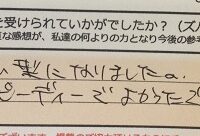 を受けられていかがでしたか？（ズバ
直な感想が、私達の何よりの力となり今後の参考
い髪になりましたa.
ピーディーでよかったで